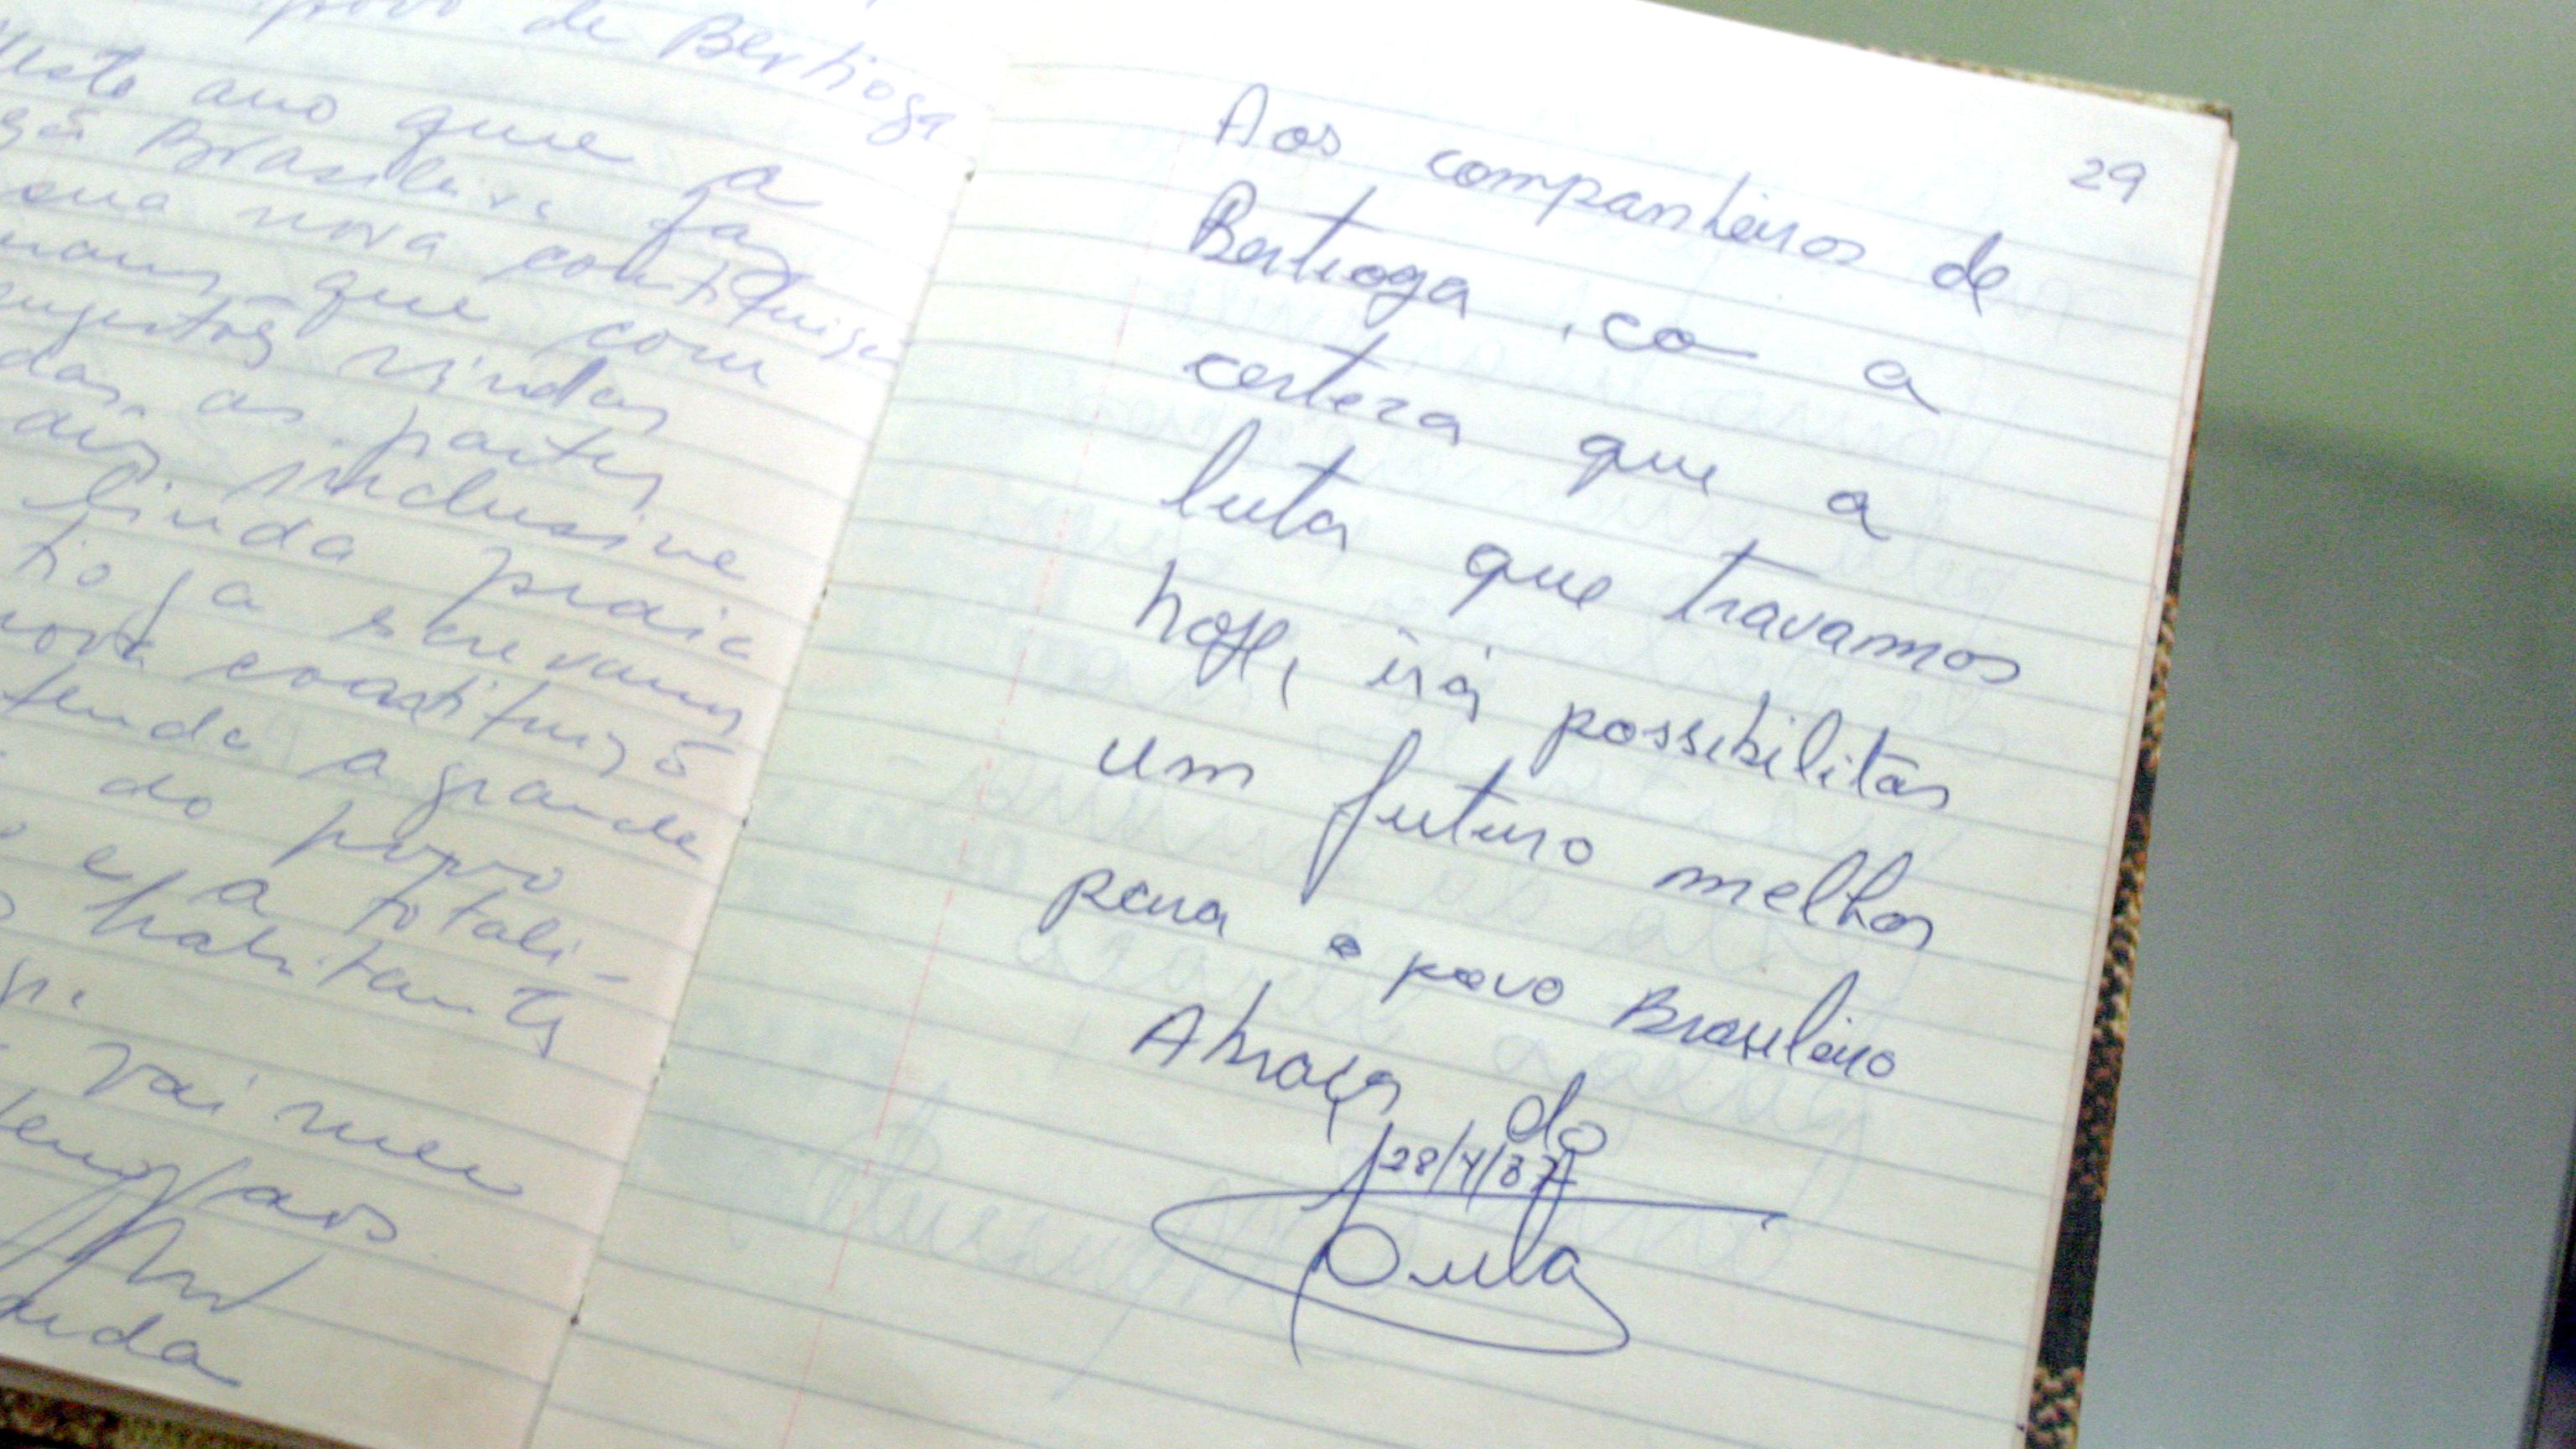 povo de Bertioga
Neste ano que a
Brasileira faz
sua nova contituiçã
que com
sugestõs vindas
as partes
inclusive
linda praia
tioga screvamos
nova constituiçõ
tenda a grande
do povo
e a totali-
habitants
vai meu
29
Aos companheiros de
Bertioga, co a
certeza que a
luta que travamos
hoje, irá possibilitar
um futuro melhor
para o povo Brasileiro
Abraço do
28/4/87
Lula